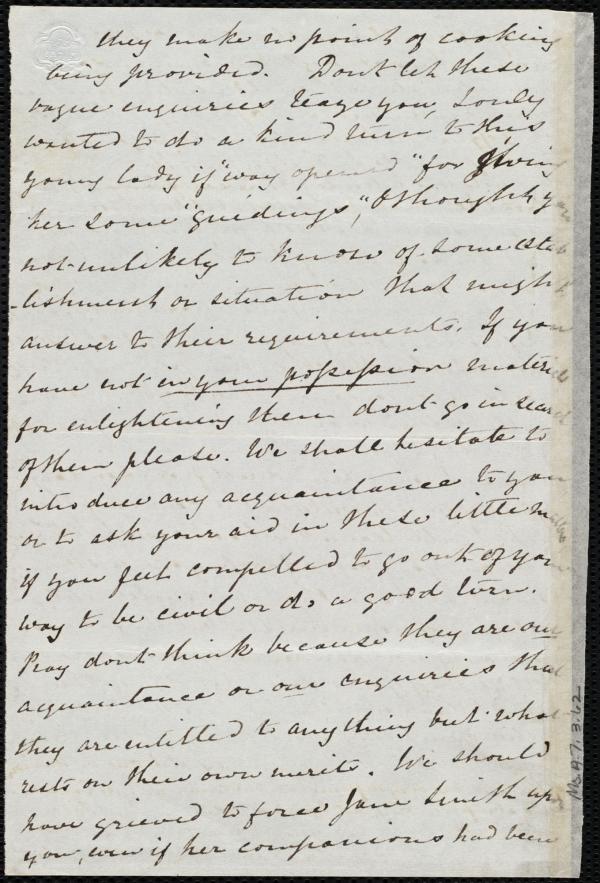 they make no point of cooking
being provided. Dont let these
vague enquiries teaze you, I only
wanted to do a kind turn to this
young lady if "way opened" for giving
her some "guidings", & thought you
not unlikely to know of some estab
-lishment or situation that might
answer to their requirements. If you
have not in your possession materials
for enlightening them dont go in search
of them please. We shall hesitate to
introduce any acquaintance to you
or to ask your aid in these little matters
if you feel compelled to go out of your
way to be civil or do a good turn.
Pray dont think because they are our
acquaintance or our enquiries that
they are entitled to anything but what
rests on their own merits. We should
have grieved to force Jane Smith upon
you, even if her companions had been
Ms.A.7.3.62